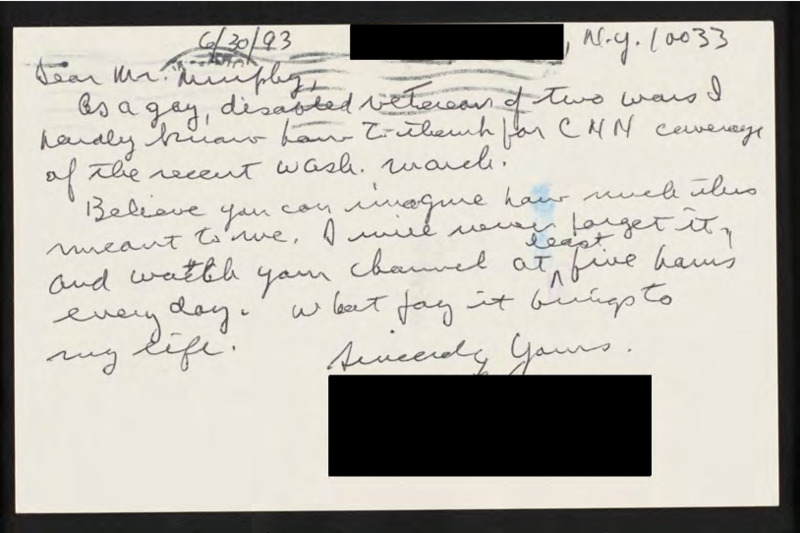 6/30/93 , N.Y. 10033
Dear Mr. Murphy,
As a gay, disabled veteran of two wars I
hardly know how to thank for CNN coverage
of the recent Wash. march.
Believe you can imagine how much this
meant to me. I will never forget it,
and watch your channel at least five hours
every day. What joy it brings to
my life.
Sincerely Yours.